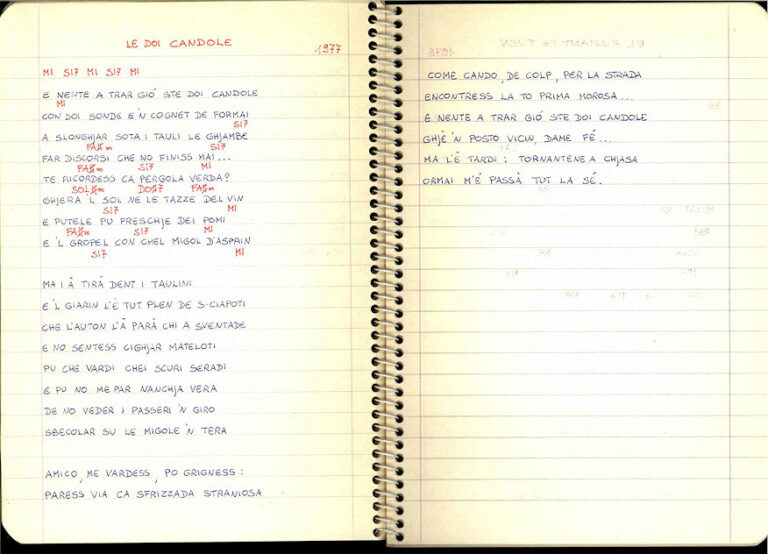 LE DOI CANDOLE
1977
MI SI7 MI SI7 MI
E NENTE A TRAR GIÓ STE DOI CANDOLE
MI
CON DOI SONDE E'N COGNET DE FORMAI
SI7
A SLONGHJAR SOTA I TAULI LE GHJAMBE
FA#m SI7
FAR DISCORSI CHE NO FINISS MAI...
FA#m SI7 MI
TE RICORDESS CA PERGOLA VERDA?
SOL#m DO#7 FA#m
GHJERA 'L SOL NE LE TAZZE DEL VIN
SI7 MI
E PUTELE PU FRESCHJE DEI POMI
FA#m SI7 MI
E 'L GROPEL CON CHEL MIGOL D'ASPAIN
SI7 MI
MA I À TIRÀ DENT I TAULINI
E 'L GIARIN L'È TUT PLEN DE S-CIAPOTI
CHE L'AUTON L'À PARÀ CHI A SVENTADE
E NO SENTESS CIGHJAR MATELOTI
PU CHE VARDI CHEI SCURI SERADI
E PU NO ME PAR NANCHJA VERA
DE NO VEDER I PASSERI 'N GIRO
SBECOLAR SU LE MIGOLE 'N TERA
AMICO, ME VARDESS, PO GRIGNESS:
PARESS VIA CA SFRIZZADA STRANIOSA
COME CANDO, DE COLP, PER LA STRADA
ENCONTRESS LA TO PRIMA MOROSA...
E NENTE A TRAR GIÓ STE DOI CANDOLE
GHJÈ 'N POSTO VICIN, DAME FÉ...
MA L'È TARDI: TORNANTENE A CHJASA
ORMAI M'È PASSÀ TUT LA SÉ.